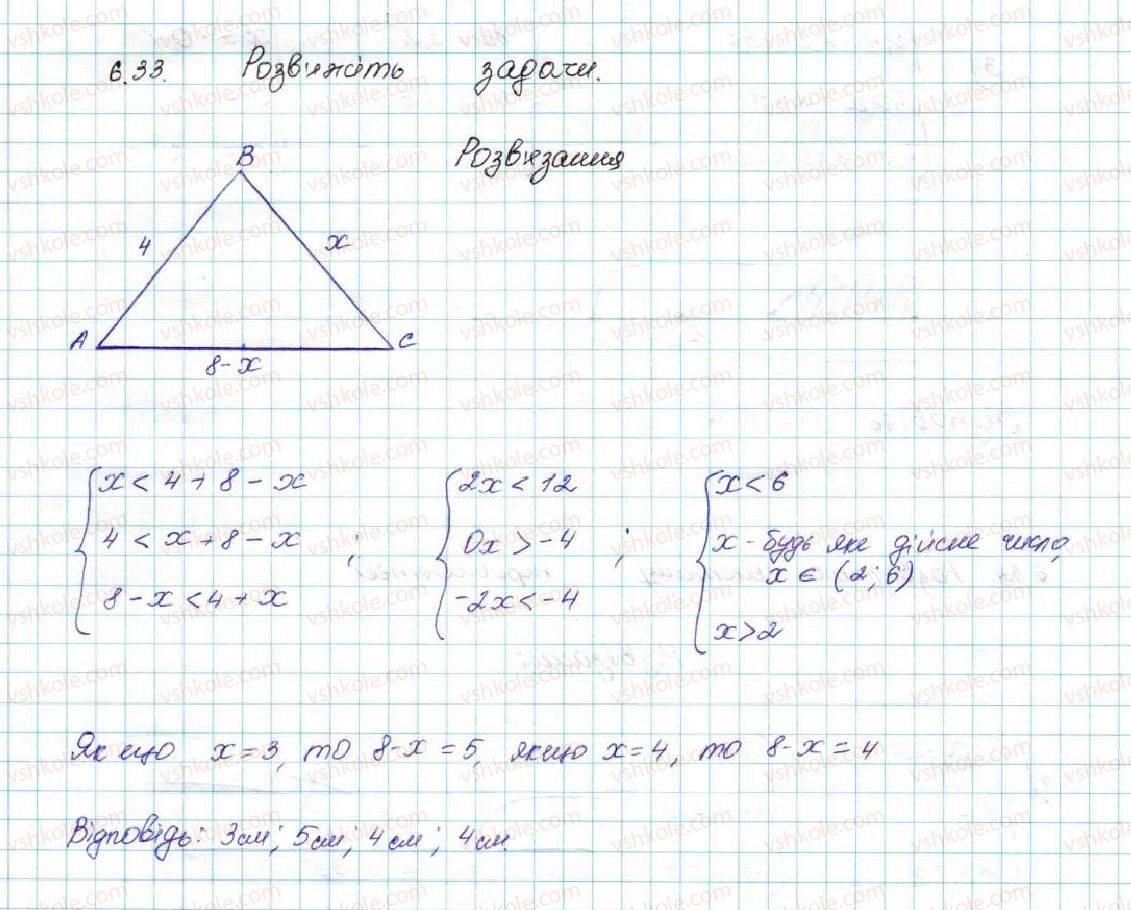 6.33. Розвяжіть задачи.
Розвязання
B
4
x
A
C
8-x
x < 4 + 8 - x
4 < x + 8 - x ;
8 - x < 4 + x
2x < 12
0x > -4 ;
-2x < -4
x < 6
x - будь яке дійсне число,
x ∈ (2; 6)
x > 2
Якщо x = 3, то 8-x = 5, якщо x = 4, то 8-x = 4
Відповідь: 3см; 5см; 4см; 4см.
vshkole.com